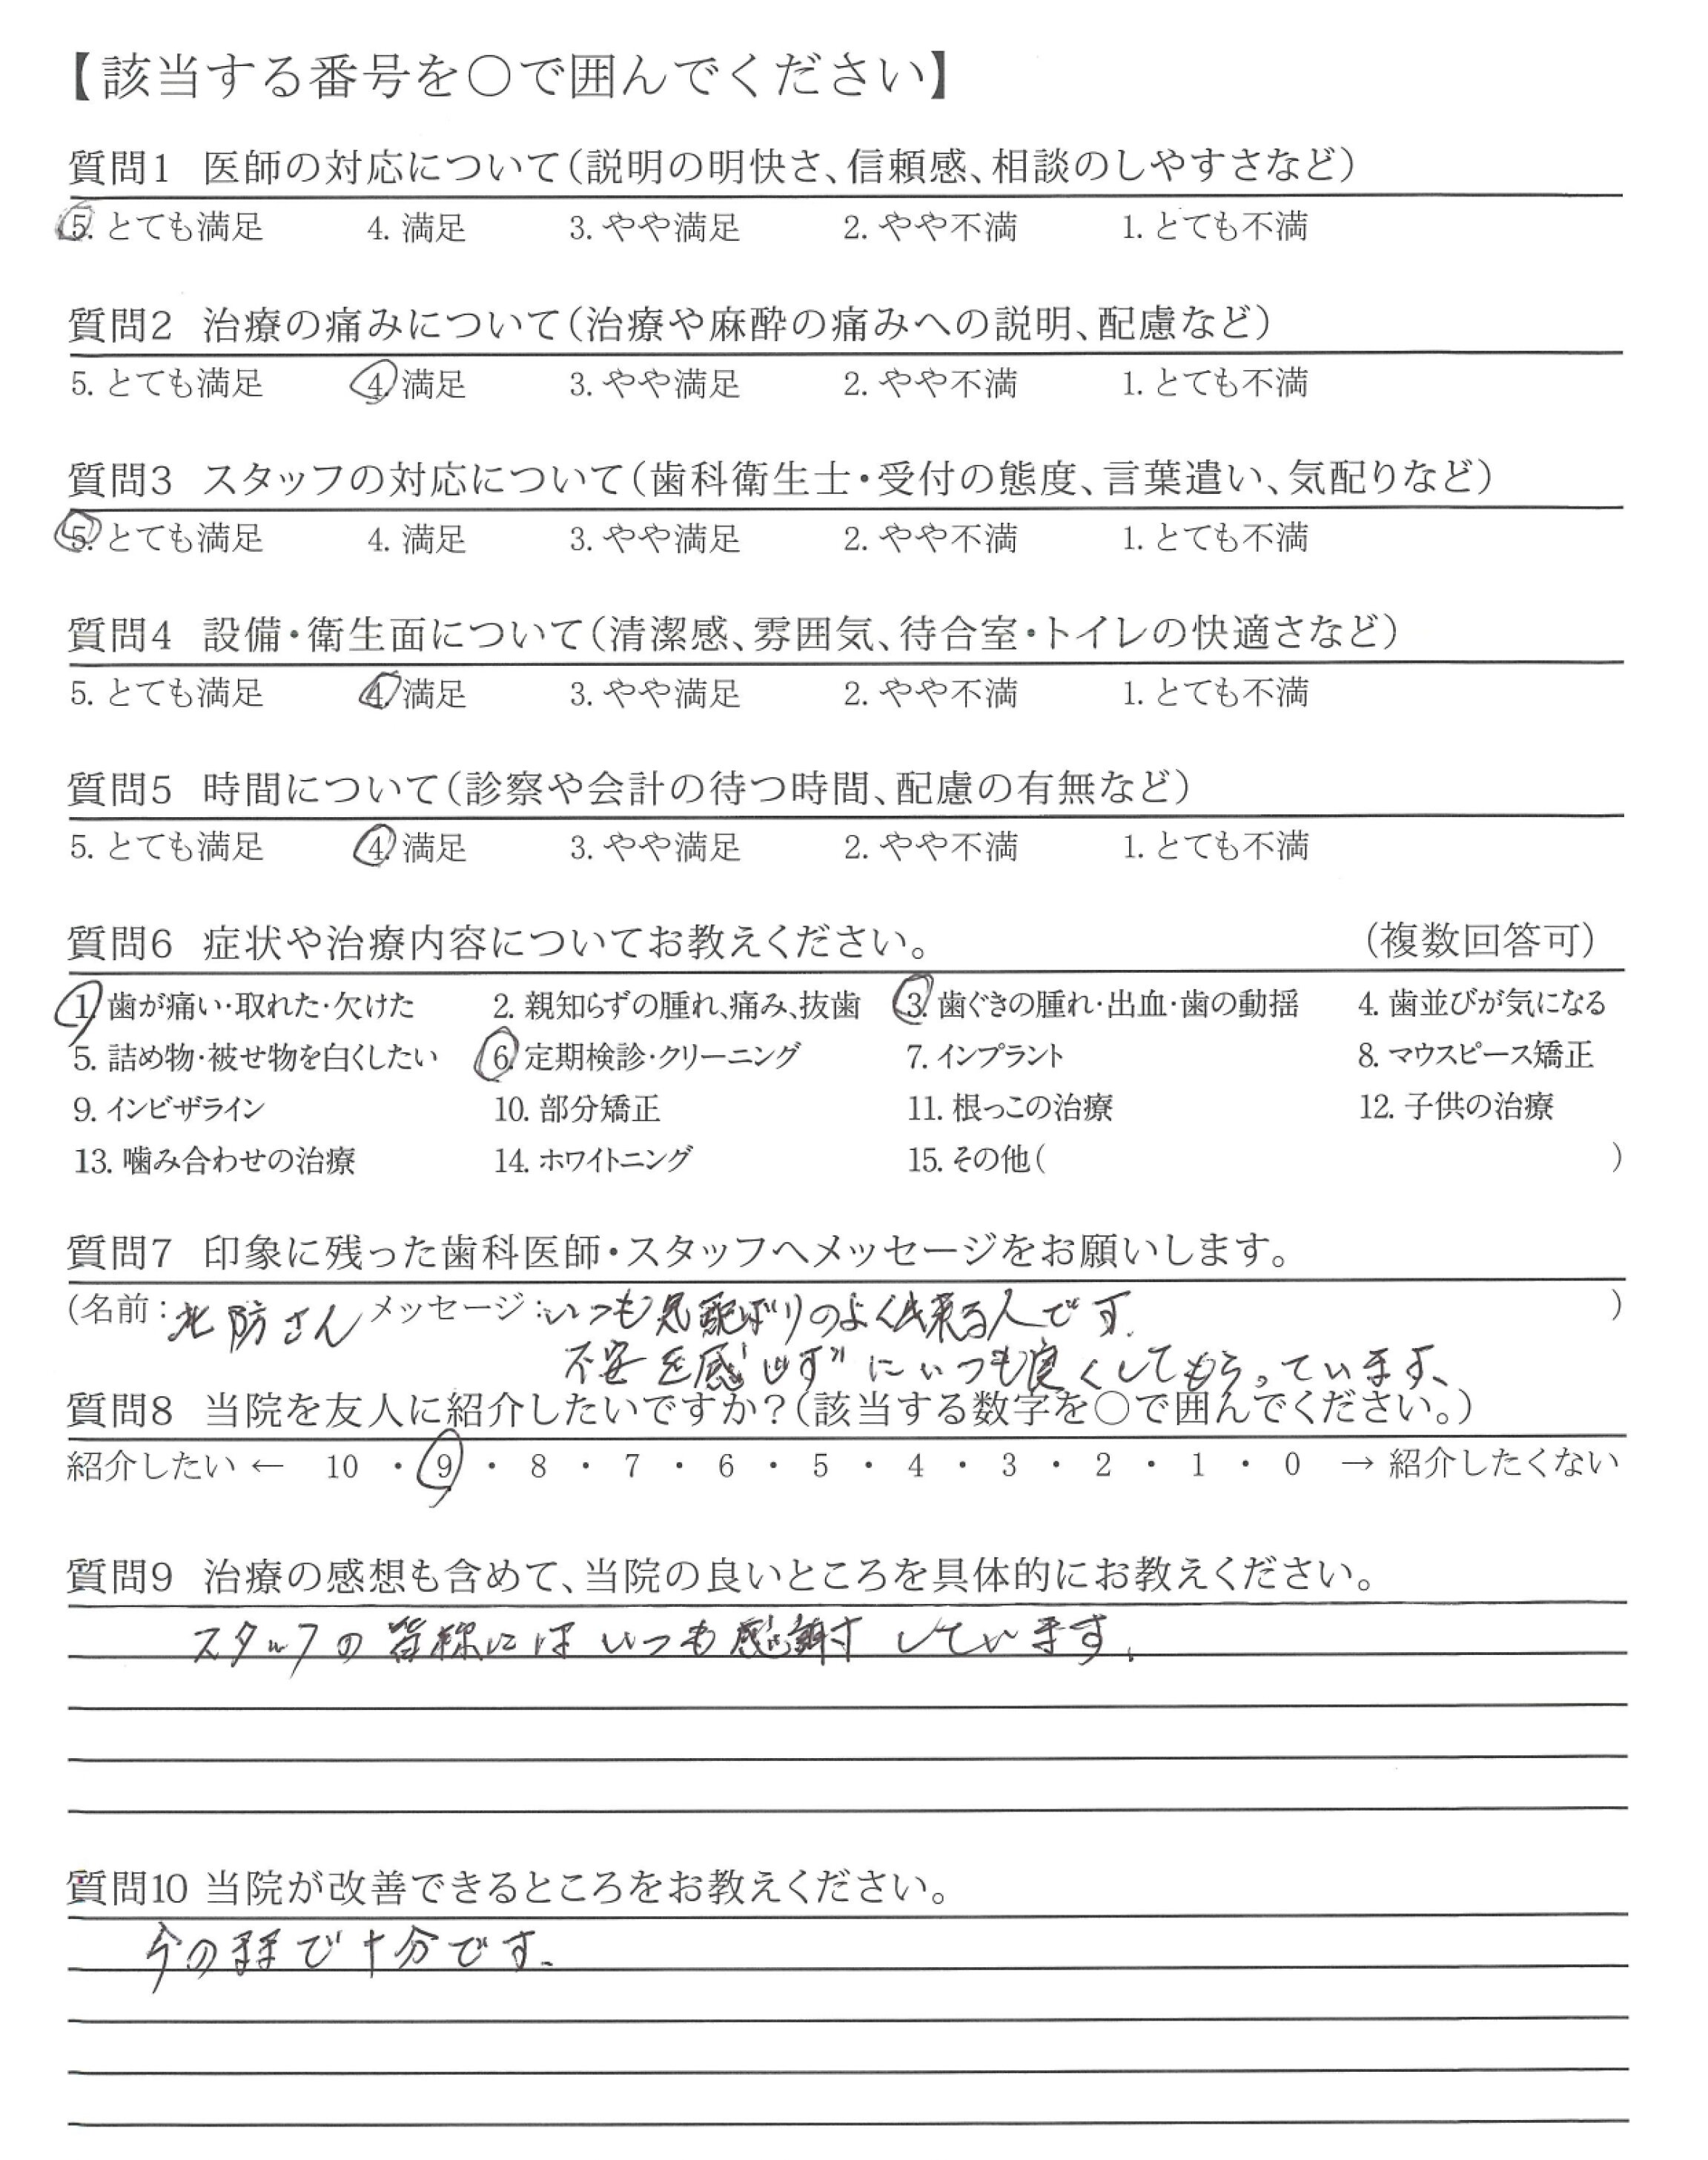 【該当する番号を○で囲んでください】
質問1 医師の対応について(説明の明快さ、信頼感、相談のしやすさなど)
5. とても満足 4. 満足 3. やや満足 2. やや不満 1. とても不満
質問2 治療の痛みについて(治療や麻酔の痛みへの説明、配慮など)
5. とても満足 4. 満足 3. やや満足 2. やや不満 1. とても不満
質問3 スタッフの対応について(歯科衛生士・受付の態度、言葉遣い、気配りなど)
5. とても満足 4. 満足 3. やや満足 2. やや不満 1. とても不満
質問4 設備・衛生面について(清潔感、雰囲気、待合室・トイレの快適さなど)
5. とても満足 4. 満足 3. やや満足 2. やや不満 1. とても不満
質問5 時間について(診察や会計の待つ時間、配慮の有無など)
5. とても満足 4. 満足 3. やや満足 2. やや不満 1. とても不満
質問6 症状や治療内容についてお教えください。 (複数回答可)
1. 歯が痛い・取れた・欠けた 2. 親知らずの腫れ、痛み、抜歯 3. 歯ぐきの腫れ・出血・歯の動揺 4. 歯並びが気になる
5. 詰め物・被せ物を白くしたい 6. 定期検診・クリーニング 7. インプラント 8. マウスピース矯正
9. インビザライン 10. 部分矯正 11. 根っこの治療 12. 子供の治療
13. 噛み合わせの治療 14. ホワイトニング 15. その他( )
質問7 印象に残った歯科医師・スタッフへメッセージをお願いします。
(名前: 北防さん メッセージ:いつも気配ばりのよく出来る人です。 )
不安を感じずにいつも良くしてもらっています、
質問8 当院を友人に紹介したいですか?(該当する数字を○で囲んでください。)
紹介したい ← 10 ・ 9 ・ 8 ・ 7 ・ 6 ・ 5 ・ 4 ・ 3 ・ 2 ・ 1 ・ 0 → 紹介したくない
質問9 治療の感想も含めて、当院の良いところを具体的にお教えください。
スタッフの皆様にはいつも感謝しています。
質問10 当院が改善できるところをお教えください。
今のままで十分です。